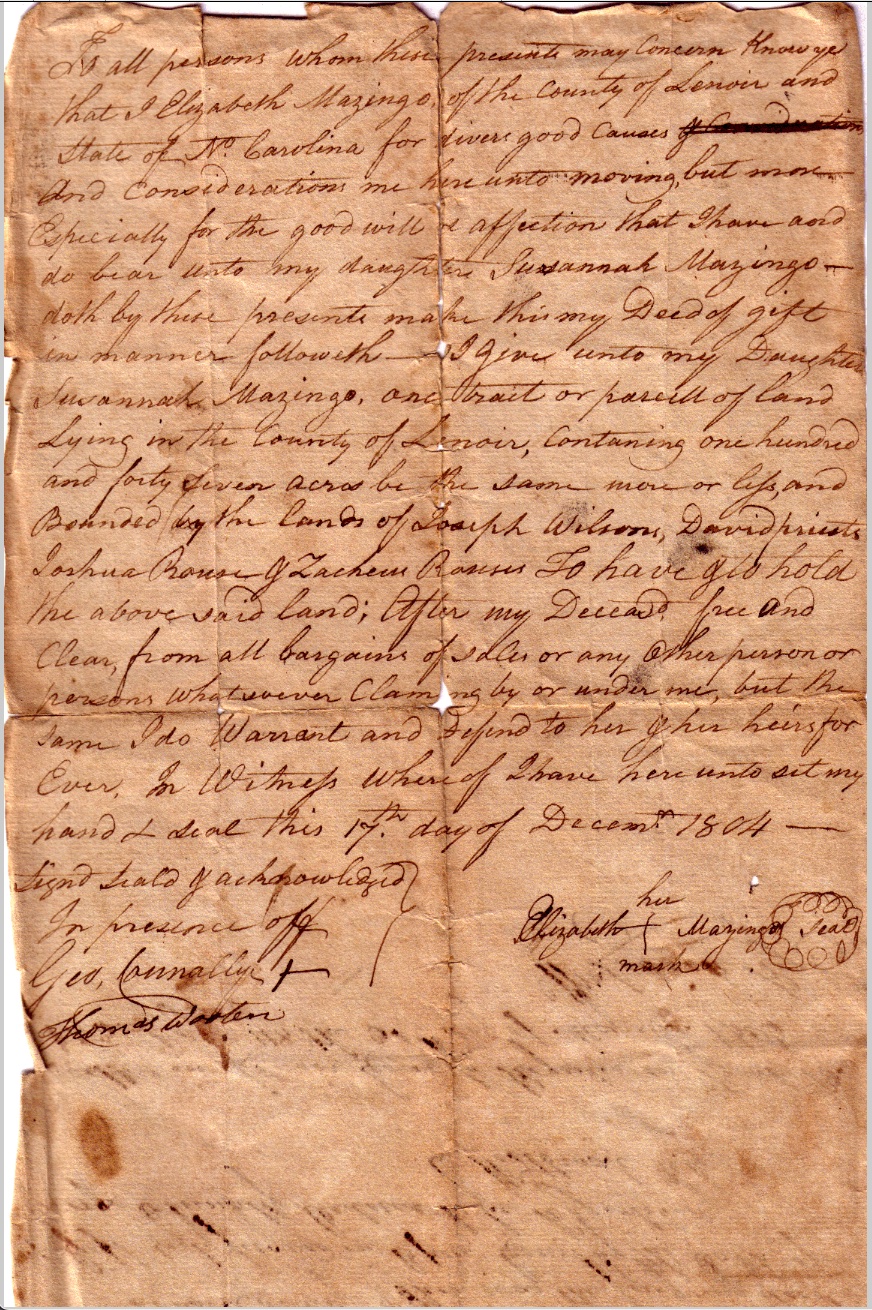 To all persons whom these presents may Concern Know ye
that I Elizabeth Mazingo, of the County of Lenoir and
State of No. Carolina for divers good Causes
And Considerations me here unto moving, but more
Especially for the good will & affection that I have and
do bear unto my daughter Susannah Mazingo —
doth by these presents make this my Deed of gift
in manner followeth — I give unto my Daughter
Susannah Mazingo, one tract or parcell of land
Lying in the County of Lenoir, Contaning one hundred
and forty seven acres be the same more or less, and
Bounded by the lands of Joseph Wilsons, David priests
Joshua Rouse & Zacheus Rouses To have & to hold
the above said land; After my Deceasd. free and
Clear, from all bargains of sales or any Other person or
persons whatsoever Claming by or under me, but the
same I do Warrant and Defend to her & her heirs for
Ever, In Witness Where of I have here unto set my
hand & seal this 17th. day of Decemr. 1804 —
Signd seald & acknowledged
In presence off
her
Elizabeth + Mazingo Seal
mark
Geo, +
Thomas Wooten